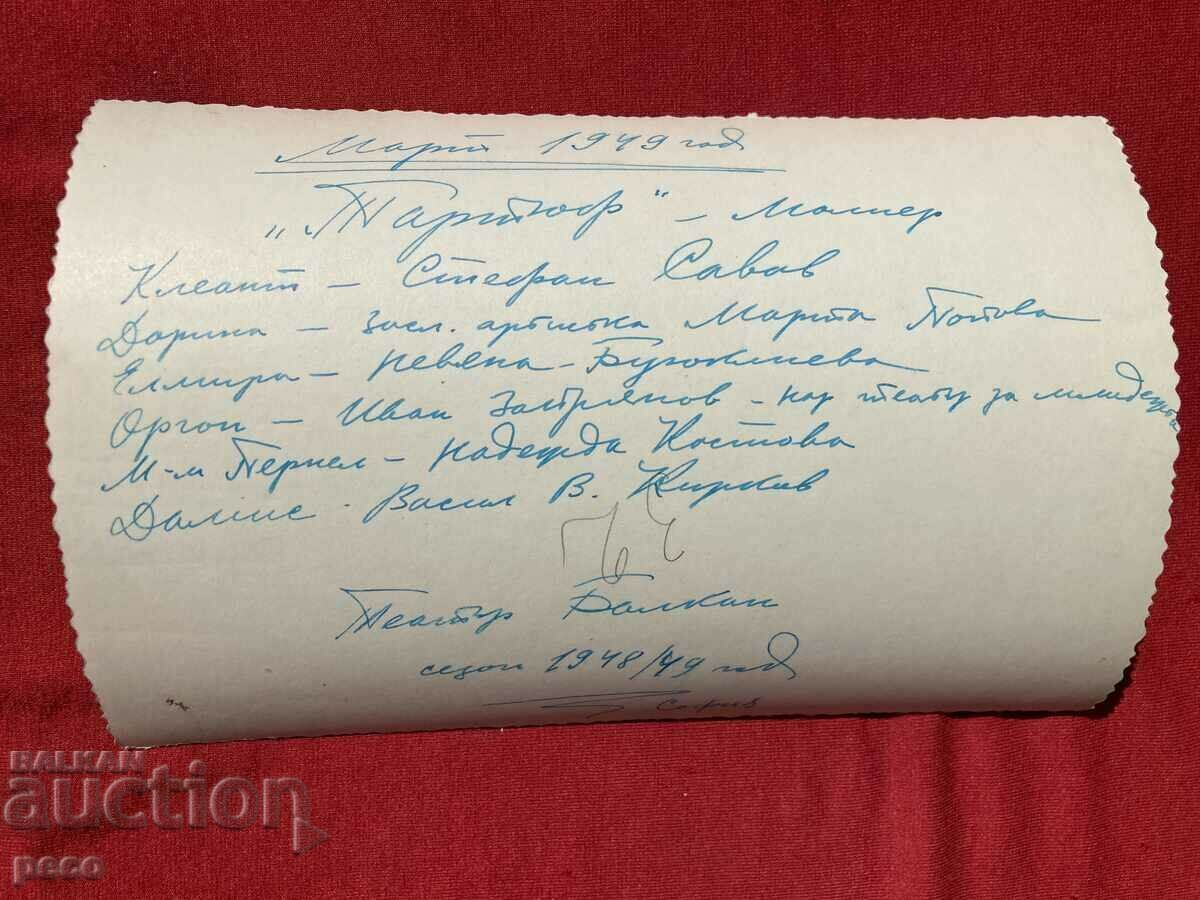 Март 1949 год
„Тартюф“ – Молиер
Клеант – Стефан Савов
Дорина – засл. артистка Марта Попова
Елмира – Невяна Буюклиева
Оргон – Иван – нар театър за младежта
М-м Пернел – Надежда Костова
Дамис - Васил В. Кирков
Театър Балкан
сезон 1948/49 год
София
BALKAN
auction
peco